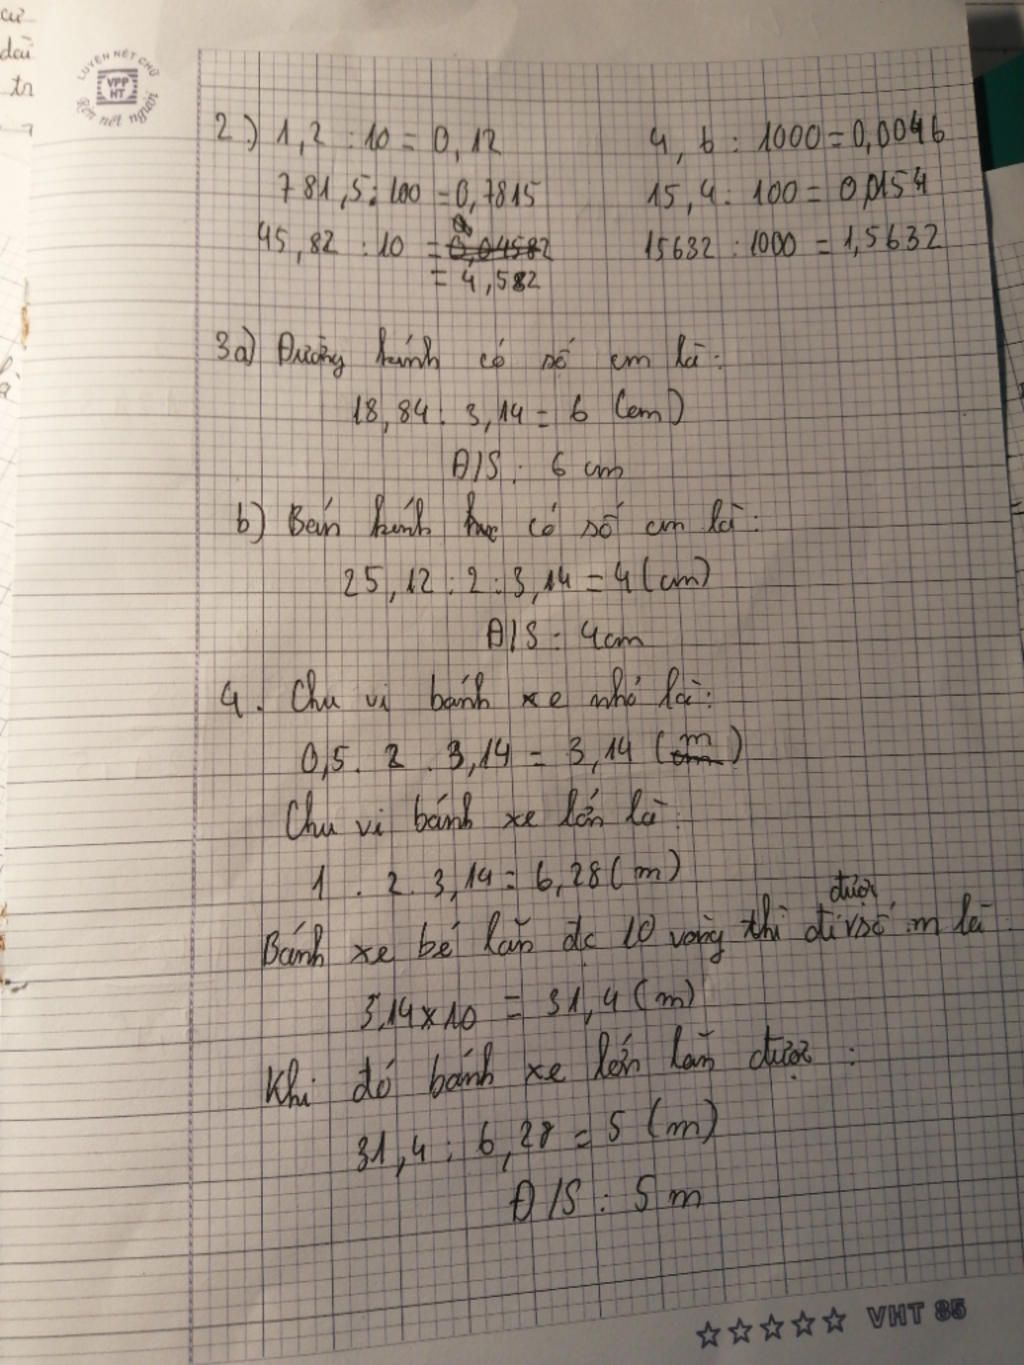 cư
dài
tr
LUYỆN NÉT CHỮ
VPP
HT
Rèn nết người
2.) 1,2 : 10 = 0,12 4,6 : 1000 = 0,0046
781,5 : 100 = 0,7815 15,4 : 100 = 0,0154
45,82 : 10 = 0,04582 15632 : 1000 = 1,5632
= 4,582
3a) Đường kính có số cm là :
18,84 : 3,14 = 6 (cm)
Đ/S : 6 cm
b) Bán kính có số cm là :
25,12 : 2 : 3,14 = 4 (cm)
Đ/S : 4cm
4. Chu vi bánh xe nhỏ là :
0,5 . 2 . 3,14 = 3,14 (m)
Chu vi bánh xe lớn là :
1 . 2 . 3,14 = 6,28 (m)
Bánh xe bé lăn đc 10 vòng thì đi được số m là
3,14 x 10 = 31,4 (m)
Khi đó bánh xe lớn lăn được :
31,4 : 6,28 = 5 (m)
Đ/S : 5 m
☆☆☆☆☆ VHT 85